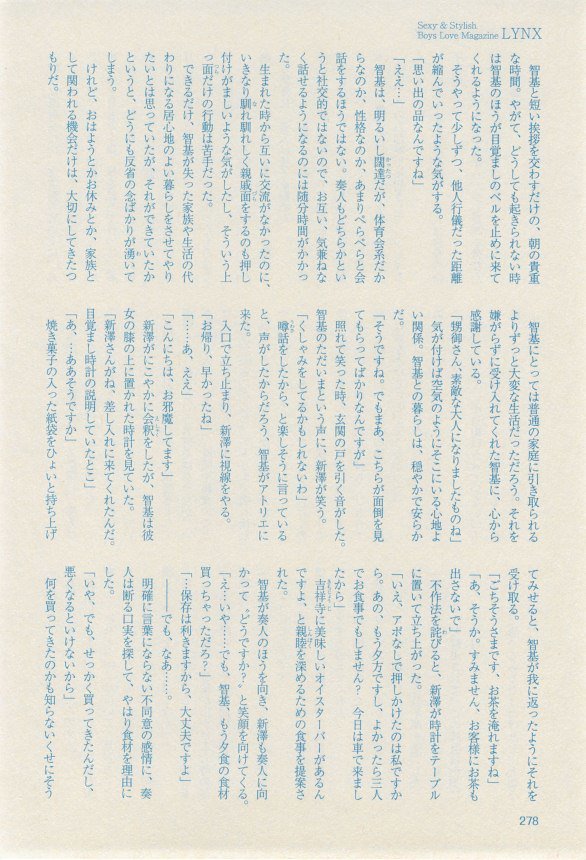 Sexy & Stylish
Boys Love Magazine LYNX
智基と短い挨拶を交わすだけの、朝の貴重
な時間。やがて、どうしても起きられない時
は智基のほうが目覚ましのベルを止めに来て
くれるようになった。
そうやって少しずつ、他人行儀だった距離
が縮んでいったような気がする。
「思い出の品なんですね」
「ええ…」
智基は、明るいし闊達だが、体育会系だか
らなのか、性格なのか、あまりべらべらと会
話をするほうではない。奏人もどちらかとい
うと社交的ではないので、お互い、気兼ねな
く話せるようになるのには随分時間がかかっ
た。
生まれた時から互いに交流がなかったのに、
いきなり馴れ馴れしく親戚面をするのも押し
付けがましいような気がしたし、そういう上
っ面だけの行動は苦手だった。
できるだけ、智基が失った家族や生活の代
わりになる居心地のよい暮らしをさせてやり
たいとは思っていたが、それができていたか
というと、どうにも反省の念ばかりが湧いて
しまう。
けれど、おはようとかお休みとか、家族と
して関われる機会だけは、大切にしてきたつ
もりだ。
智基にとっては普通の家庭に引き取られる
よりずっと大変な生活だっただろう。それを
嫌がらずに受け入れてくれた智基に、心から
感謝している。
「甥御さん、素敵な大人になりましたものね」
気が付けば空気のようにそこにいる心地よ
い関係。智基との暮らしは、穏やかで安らか
だ。
「そうですね。でもまあ、こちらが面倒を見
てもらってばかりなんですが」
照れて笑った時、玄関の戸を引く音がした。
智基のただいまという声に、新澤が笑う。
「くしゃみをしてるかもしれないわ」
噂話をしたから、と楽しそうに言っている
と、声がしたからだろう、智基がアトリエに
来た。
入口で立ち止まり、新澤に視線をやる。
「お帰り、早かったね」
「……あ、ええ」
「こんにちは、お邪魔してます」
新澤がにこやかに会釈をしたが、智基は彼
女の膝の上に置かれた時計を見ていた。
「新澤さんがね、差し入れに来てくれたんだ。
目覚まし時計の説明していたとこ」
「あ、…ああそうですか」
焼き菓子の入った紙袋をひょいと持ち上げ
てみせると、智基が我に返ったようにそれを
受け取る。
「ごちそうさまです、お茶を淹れますね」
「あ、そうか。すみません、お客様にお茶も
出さないで」
不作法を詫びると、新澤が時計をテーブル
に置いて立ち上がった。
「いえ、アポなしで押しかけたのは私ですか
ら。あの、もう夕方ですし、よかったら三人
でお食事でもしません？ 今日は車で来まし
たから」
吉祥寺に美味しいオイスターバーがあるん
ですよ、と親睦を深めるための食事を提案さ
れた。
智基が奏人のほうを向き、新澤も奏人に向
かって〝どうですか？〟と笑顔を向けてくる。
「え…いや……でも、智基、もう夕食の食材
買っちゃっただろ？」
「…保存は利きますから、大丈夫ですよ」
――でも、なあ……。
明確に言葉にならない不同意の感情に、奏
人は断る口実を探して、やはり食材を理由に
した。
「いや、でも、せっかく買ってきたんだし、
悪くなるといけないから」
何を買ってきたのかも知らないくせにそう
278